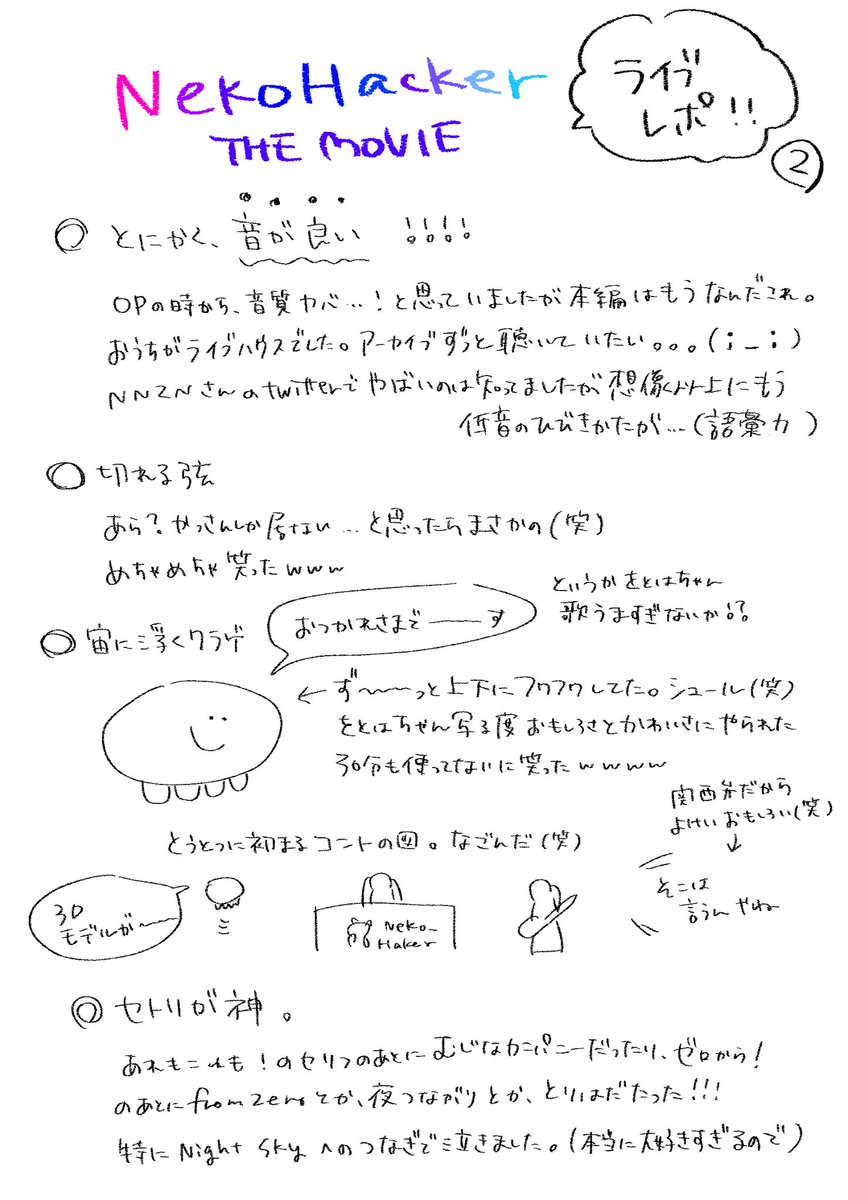 NekoHacker
THE MOVIE
ライブ
レポ!!
②
◎ とにかく、音が良い !!!!
OPの時から、音質ヤバ…!と思っていましたが本編はもうなんだこれ。
おうちがライブハウスでした。アーカイブずっと聴いていたい。。。(;_;)
NNZNさんのtwitterでやばいのは知ってましたが想像以上にもう
低音のひびきかたが…(語彙力)
◎ 切れる弦
あら?かっさんしか居ない…と思ったらまさかの(笑)
めちゃめちゃ笑ったwww
というかをとはちゃん
歌うますぎないか!?
◎ 宙に浮くクラゲ
おつかれさまで――す
← ず〜〜っと上下にフワフワしてた。シュール(笑)
をとはちゃん写る度おもしろさとかわいさにやられた
30分も使ってないに笑ったwwww
関西弁だから
よけいおもしろい(笑)
とうとつに初まるコントの図。なごんだ(笑)
3D
モデルが〜〜
Neko-
Haker
そこは
言うんやね
◎ セトリが神。
あれもこれも!のセリフのあとにむじなカンパニーだったり、ゼロから!
のあとにfrom zeroとか、夜つながりとか、とりはだたった!!!
特にNight Skyへのつなぎで泣きました。(本当に大好きすぎるので)